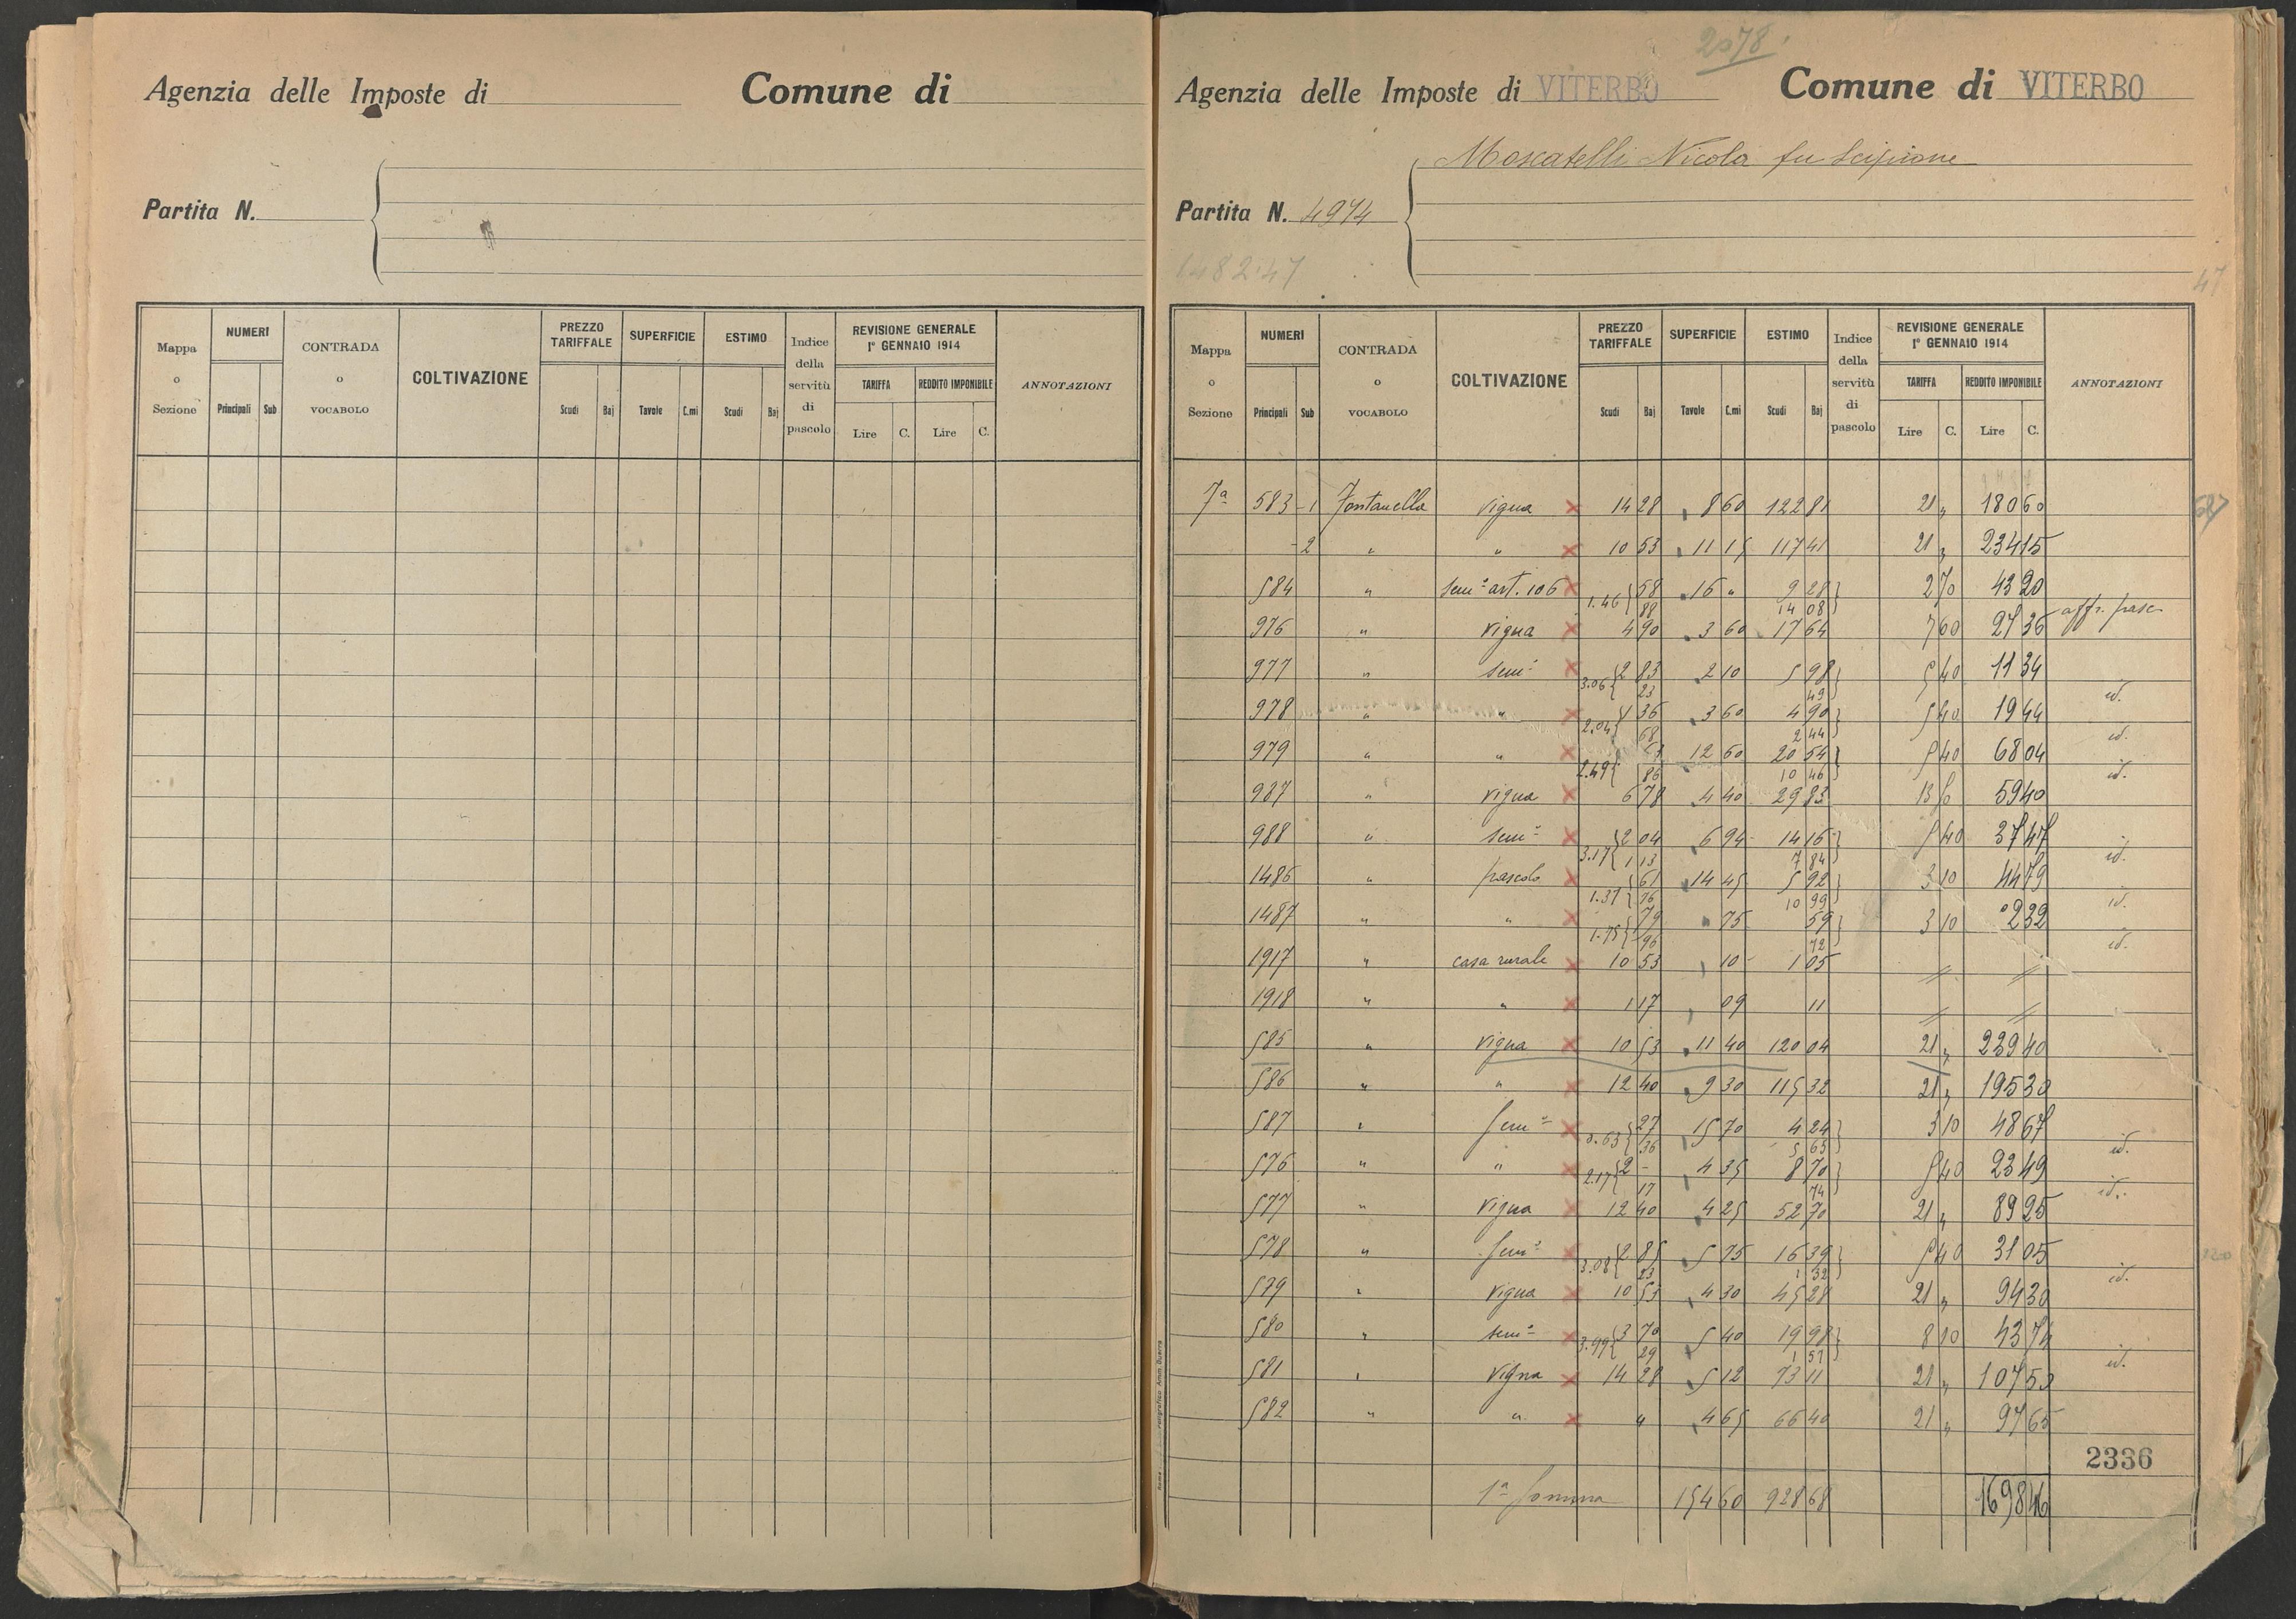 Agenzia delle Imposte di
Comune di
Partita N.
Mappa o Sezione
NUMERI
Principali Sub
CONTRADA o VOCABOLO
COLTIVAZIONE
PREZZO TARIFFALE
Scudi Baj
SUPERFICIE
Tavole C.mi
ESTIMO
Scudi Baj
Indice della servitù di pascolo
REVISIONE GENERALE 1° GENNAIO 1914
TARIFFA
Lire C.
REDDITO IMPONIBILE
Lire C.
ANNOTAZIONI
2078
Agenzia delle Imposte di VITERBO
Comune di VITERBO
Moscatelli Nicola fu Scipione
Partita N. 4974
47
Mappa o Sezione
NUMERI
Principali Sub
CONTRADA o VOCABOLO
COLTIVAZIONE
PREZZO TARIFFALE
Scudi Baj
SUPERFICIE
Tavole C.mi
ESTIMO
Scudi Baj
Indice della servitù di pascolo
REVISIONE GENERALE 1° GENNAIO 1914
TARIFFA
Lire C.
REDDITO IMPONIBILE
Lire C.
ANNOTAZIONI
7ª 583 - 1 Fontanella vigna × 14 28 8 60 122 81 21 „ 180 60
- 2 „ „ × 10 53 11 15 117 41 21 „ 234 15
584 „ sem° art. 106 × 1.46 { 58 16 „ 9 28 } 2 70 43 20
88 14 08 aff. pasc
976 „ vigna × 4 90 3 60 17 64 7 60 27 36
977 „ sem° × 3.06 { 2 83 2 10 5 98 } 5 40 11 34
23 49 id.
978 „ „ × 2.04 { 1 36 3 60 4 90 } 5 40 19 44
68 2 44 id.
979 „ „ × 2.49 { 12 60 20 54 } 5 40 68 04
86 10 46 id.
987 „ vigna × 6 78 4 40 29 83 13 50 59 40
988 „ sem° × 3.17 { 2 04 6 94 14 16 } 5 40 37 47
1 13 7 84 id.
1486 „ pascolo × 1.37 { 61 14 45 5 92 } 3 10 44 79
76 10 99 id.
1487 „ „ × 1.75 { 79 75 59 } 3 10 2 32
96 72 id.
1917 „ casa rurale × 10 53 10 1 05 // //
1918 „ „ × 1 17 09 11 // //
585 „ vigna × 10 53 11 40 120 04 21 „ 239 40
586 „ „ × 12 40 9 30 115 32 21 „ 195 30
587 „ sem° × 0.63 { 27 15 70 4 24 } 3 10 48 67
36 5 65 id.
576 „ „ × 2.17 { 2 - 4 35 8 70 } 5 40 23 49
17 74 id.
577 „ vigna × 12 40 4 25 52 70 21 „ 89 25
578 „ sem° × 3.08 { 2 85 5 75 16 39 } 5 40 31 05
23 1 32 id.
579 „ vigna × 10 53 4 30 45 28 21 „ 94 30
580 „ sem° × 3.99 { 3 70 5 40 19 98 } 8 10 43 74
29 1 57 id.
581 „ vigna × 14 28 5 12 73 11 21 „ 107 52
582 „ „ × „ 4 65 66 40 21 „ 97 65
2336
1ª Somma 154 60 928 68 1698 46